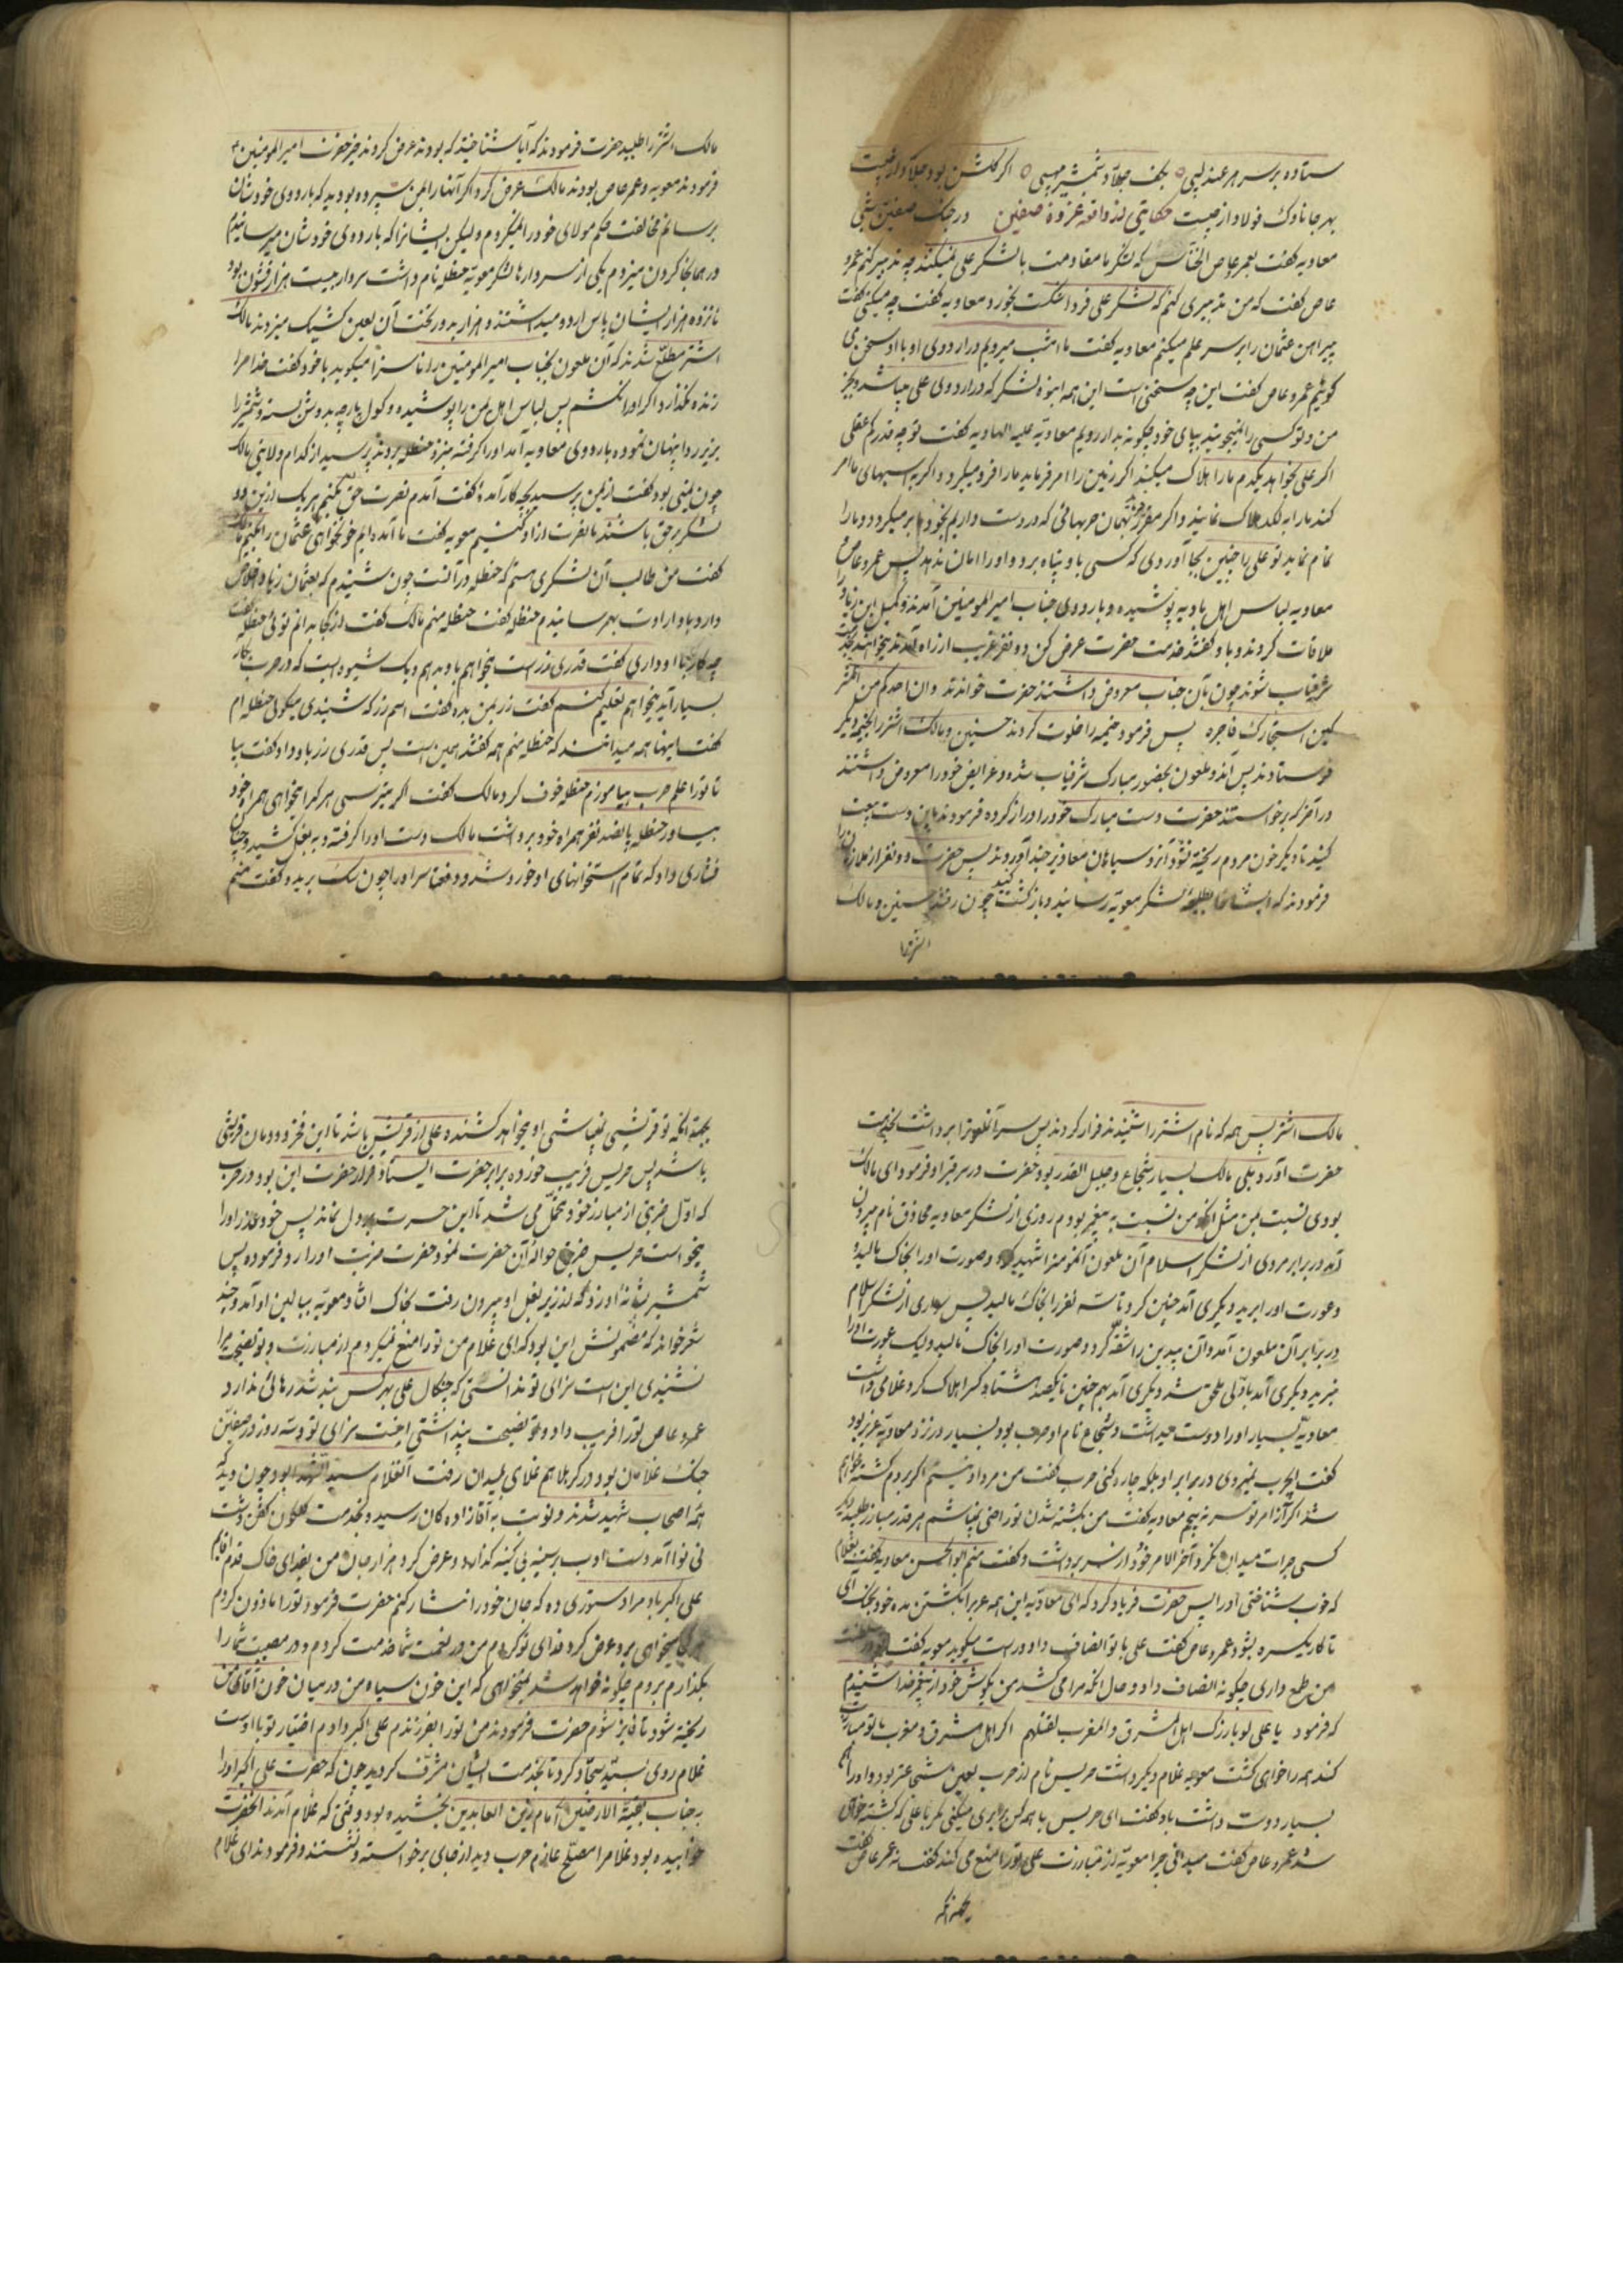 ستاده بر سر هر عندلیبی بکف جلاد شمشیر مهیبی اگر گلشن بود جلاد از چیست
بهر جا ناوک فولاد از چیست حکایتی از واقعه غزوه صفین در جنگ صفین شبی
معاویه گفت بعمرو عاص که لشکر ما مقاومت با لشکر علی نمیکنند چه تدبیر کنم عمرو
عاص گفت که من تدبیری کنم که لشکر علی فردا شکست بخورد معاویه گفت چه میکنی گفت
پیراهن عثمان را بر سر علم میکنم معاویه گفت ما امشب میرویم در اردوی او با او سخن می
گوئیم عمرو عاص گفت این چه سخنی است این همه انبوه لشکر که در اردوی علی میباشد و بجز
من و تو کسی را نمیجویند بپای خود چگونه بدار رویم معاویه علیه الهاویه گفت تو چه قدر کم عقلی
اگر علی بخواهد یکدم ما را هلاک میکند اگر زمین را امر فرماید ما را فرو میبرد و اگر به اسبهای ما امر
کند ما را به لگد هلاک نمایند و اگر بهمان حربهائی که در دست داریم بخود ما بر میگردد و ما را
تمام نماید تو علی را چنین بجا آوردی که کسی باو پناه برد و او را امان ندهد پس عمرو عاص و
معاویه لباس اهل بادیه پوشیده و باردوی جناب امیر المومنین آمدند و کمیل ابن زیاد را
ملاقات کردند و باو گفتند خدمت حضرت عرض کن دو نفر غریب از راه آمدند میخواهند بخدمت
شرفیاب شوند چون بآن جناب معروض داشتند حضرت خواندند وان احدکم من المشر
کین استجارک فاجره پس فرمود خیمه را خلوت کردند حسنین و مالک اشتر را بخیمه دیگر
فرستادند پس آندو ملعون بحضور مبارک شرفیاب شده و عرایض خود را معروض داشتند
در آخر که برخواستند حضرت دست مبارک خود را دراز کرده فرمودند باین دست بیعت
کنید تا دیگر خون مردم ریخته نشود آندو سیاهان معاذیر چند آوردند پس حضرت دو نفر از ملازمان را
فرمودند که ایشان را بطلیعه لشکر معویه رسانید و باز گشت کنید چون رفتند حسنین و مالک
اشتر را
مالک اشتر را طلبید حضرت فرمودند که آیا شناختید که بودند عرض کردند خیر حضرت امیر المومنین
فرمودند معویه و عمرو عاص بودند مالک عرض کرد اگر آنها را بمن سپرده بودید که باردوی خودشان
برسانم مخالفت حکم مولای خود را نمیکردم ولیکن ایشانرا که باردوی خودشان میرسانیدم
در همانجا گردن میزدم یکی از سردارها لشکر معویه حنظله نام داشت سردار بیست هزار قشون بود
پانزده هزار ایشان پاس اردو میداشتند و هزار بدور تخت آن لعین کشیک میزدند مالک
اشتر مطلع شدند که آن ملعون بجناب امیر المومنین را ناسزا میگوید با خود گفت خدا مرا
زنده نگذارد اگر او را نکشم پس لباس اهل یمن را پوشیده و کول پارچه بدوش بسته و شمشیر را
بزیر ردا پنهان نموده باردوی معاویه آمد او را گرفته بنزد حنظله بردند پرسید از کدام ولایتی مالک
چون یمنی بود گفت از یمن پرسید بچه کار آمده گفت آمدم نصرت حق بکنم هر یک از این دو
لشکر بر حق باشند ما نصرت از او کنیم معویه گفت ما آمده ایم خونخواهی عثمان را بکنیم مالک
گفت من طالب آن لشکری هستم که حنظله در آنست چون شنیدم که بعثمان زیاد اخلاص
دارد باو ارادت بهم رسانیدم حنظله گفت حنظله منم مالک گفت از کجا بدانم توئی حنظله گفت
چه کار با او داری گفت قدری زر است میخواهم باو بدهم و یک شیوه است که در حرب بکار
بسیار آید میخواهم تعلیم کنم گفت زر بمن بده گفت اسم زر که شنیدی میگوئی حنظله ام
گفت اینها همه میدانند که حنظله منم همه گفتند همین است پس قدری زر باو داد و گفت بیا
تا ترا علم حرب بیاموزم حنظله خوف کرد مالک گفت اگر میترسی هر که را میخواهی همراه خود
بیاور حنظله پانصد نفر همراه خود برداشت مالک دست او را گرفته و به بغل کشید و چنان
فشاری داد که تمام استخوانهای او خورد شد و دفعتا سر او را چون سگ برید و گفت منم
مالک اشتر پس همه که نام اشتر را شنیدند فرار کردند پس سر آنملعونرا برداشت بخدمت
حضرت آورد بلی مالک بسیار شجاع و جلیل القدر بود حضرت در سر قبر او فرمود ای مالک
بودی نسبت بمن مثل آنکه من نسبت به پیغمبر بودم روزی از لشکر معاویه مخاذق نام بیرون
آمد در برابر مردی از لشکر اسلام آن ملعون آنمومنرا شهید کرد و صورت او را بخاک مالید و
و عورت او را برید و دیگری آمد چنین کرد تا سه نفر را بخاک مالید پس سواری از لشکر اسلام
در برابر آن ملعون آمد و آن بیدین را شقه کرد و صورت او را بخاک مالید ولیک عورت او را
نبرید دیگری آمد باولی ملحق شد دیگری آمد بهم چنین تا یکصد هشتاد کس را هلاک کرد غلامی داشت
معاویه بسیار او را دوست میداشت و شجاع نام او حرب بود بسیار در نزد معاویه عزیز بود
گفت ایحرب نمیروی در برابر او بلکه چاره کنی حرب گفت من مرد او نیستم اگر بروم کشته خواهم
شد اگر آنرا امر تو سر نپیچم معاویه گفت من بکشته شدن تو راضی نمیباشم هر قدر مبارز طلبید دیگر
کسی جرات میدان نکرد آخر الامر خود از سر برداشت و گفت منم ابو الحسن معاویه گفت بغلام
که خوب شناختی او را پس حضرت فریاد کرد که ای معاویه این همه عرب را بکشتن مده خود بجنگ آی
تا کار یکسره بشود عمرو عاص گفت علی با تو انصاف داد و راست میگوید معویه گفت
من طمع داری چگونه انصاف داد و حال آنکه مرا می کشد من بگوش خود از پیغمبر خدا شنیدم
که فرمود یا علی لو بارزک اهل المشرق والمغرب لقتلهم اگر اهل مشرق و مغرب با تو مبارزت
کنند همه را خواهی کشت معویه غلام دیگر داشت حریس نام از حرب لعین شجاعتر بود و او را هم
بسیار دوست داشت باو گفت ای حریس با همه کس برابری میکنی مگر با علی که کشته خواهی
شد عمرو عاص گفت میدانی چرا معویه از مبارزت علی تو را منع می کند گفت نه عمرو عاص گفت
بجهة آنکه
بجهة آنکه تو قریشی نمیباشی او میخواهد کشنده علی از قریش باشد تا این فخر دودمان قریش
باشد پس حریس فریب خورده برابر حضرت ایستاد قرار حضرت این بود در حرب
که اول ضربتی از مبارز خود متحمل می شد تا این حسرت بدل نماند پس خود عذر او را
میخواست حریس ضربتی حواله آن حضرت نمود حضرت ضربت او را رد فرموده پس
شمشیر بشانه او زد که از زیر بغل او بیرون رفت بخاک افتاد معویه ببالین او آمد و چند
شعر خواند که مضمونش این بود که ای غلام من تو را منع میکردم از مبارزت و تو نصیحت مرا
نشنیدی این است سزای تو ندانستی که چنگال علی بهر کس بند شد رهائی ندارد
عمرو عاص تو را فریب داد و تو نصیحت پنداشتی اینست سزای تو و سه روز در صفین
جنگ غلامان بود در کربلا هم غلامی بمیدان رفت آنغلام سید الشهدا بود چون دید که
همه اصحاب شهید شدند و نوبت به آقازاده کان رسید و بخدمت گلگون کفن دشت
نی نوا آمد دست ادب بر سینه بی کینه گذارد و عرض کرد هزار جان من بفدای خاک قدم اقایم
علی اکبر باد مرا دستوری ده که جان خود را نثار کنم حضرت فرمود تو را ماذون کردم
میخواهی برو عرض کرد فدای تو گردم من در نعمت شما خدمت کردم و در مصیبت شما را
بگذارم بروم چگونه خواهد شد نمیخواهی که این خون سیاه من در میان خون آقائی من
ریخته شود تا فایز شوم حضرت فرمودند من تو را بفرزندم علی اکبر دادم اختیار تو با اوست
غلام روی بسید سجاد کرد تا بخدمت ایشان مشرف گردید چون که حضرت علی اکبر او را
به جناب بقیة الارضین امام زین العابدین بخشیده بود وقتی که غلام آمدند آنحضرت
خوابیده بود غلام را مصلح عازم حرب دید از جای برخواسته و نشستند و فرمودند ای غلام